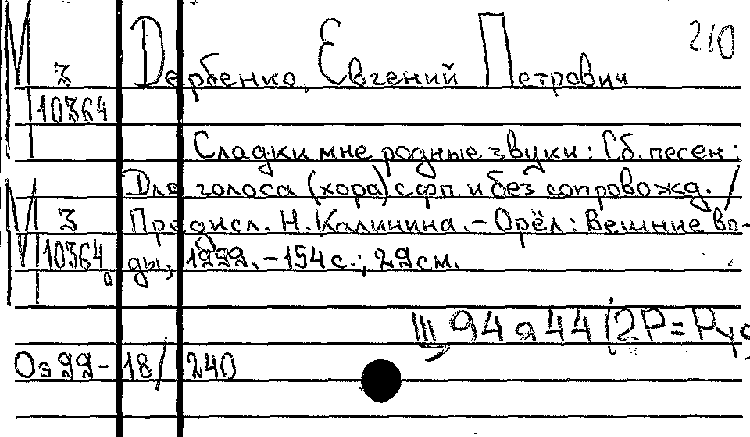 210
М
3 Дербенко, Евгений Петрович
10364
Сладки мне родные звуки: Сб. песен:
Для голоса (хора) с фп. и без сопровожд. /
М 3 Предисл. Н. Калинина. - Орёл: Вешние во-
10364 ды, 1999. - 154 с.; 29 см.
Ш 94 я 44 (2Р=Рус
Оз 99-18/240